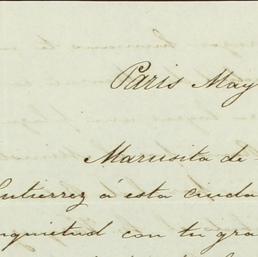 Paris May
Marusita de
Gutierrez á esta ciuda
nquietud con tu gra